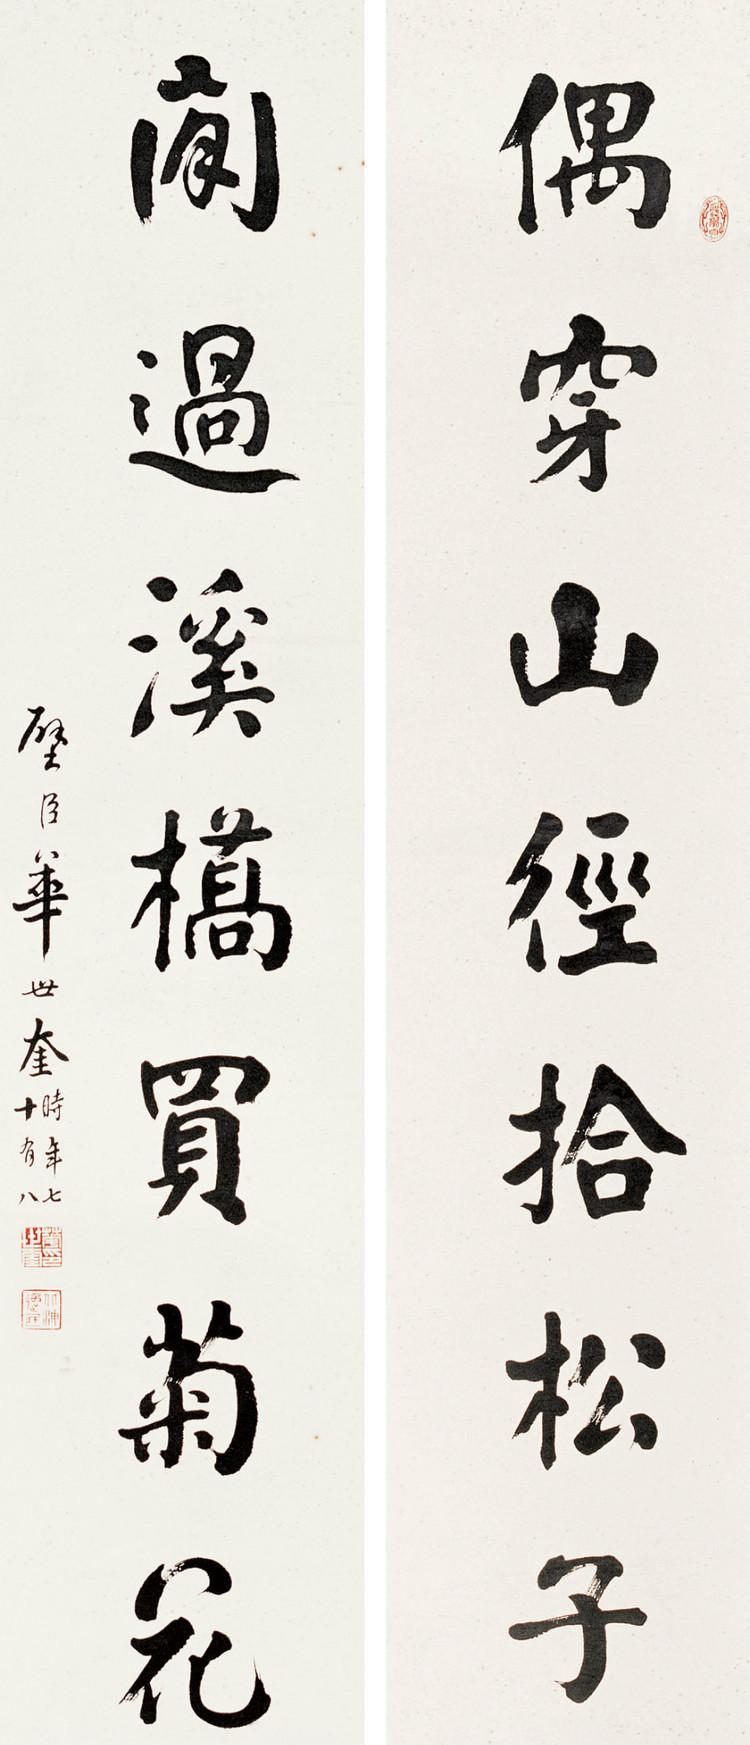 偶穿山徑拾松子
閒過溪橋買菊花
璧臣華世奎時年七
十有八